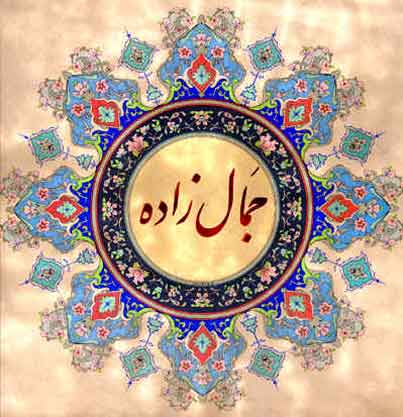 جمال زاده